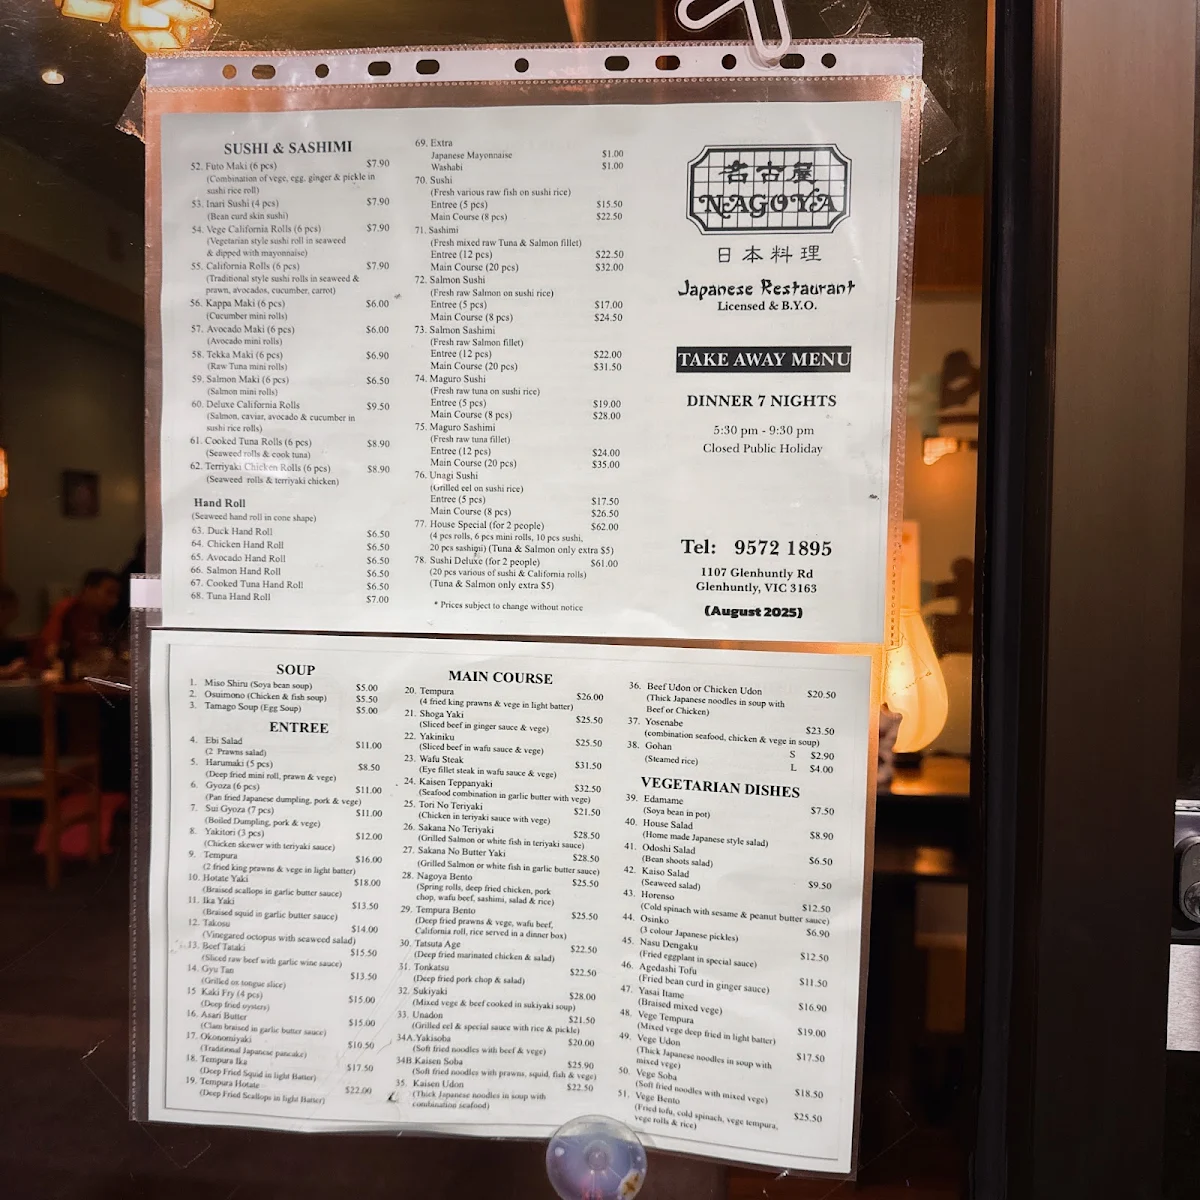 SUSHI & SASHIMI
52. Futo Maki (6 pcs) $7.90
(Combination of vege, egg, ginger & pickle in
sushi rice roll)
53. Inari Sushi (4 pcs) $7.90
(Bean curd skin sushi)
54. Vege California Rolls (6 pcs) $7.90
(Vegetarian style sushi roll in seaweed
& dipped with mayonnaise)
55. California Rolls (6 pcs) $7.90
(Traditional style sushi rolls in seaweed &
prawn, avocados, cucumber, carrot)
56. Kappa Maki (6 pcs) $6.00
(Cucumber mini rolls)
57. Avocado Maki (6 pcs) $6.00
(Avocado mini rolls)
58. Tekka Maki (6 pcs) $6.90
(Raw Tuna mini rolls)
59. Salmon Maki (6 pcs) $6.50
(Salmon mini rolls)
60. Deluxe California Rolls $9.50
(Salmon, caviar, avocado & cucumber in
sushi rice rolls)
61. Cooked Tuna Rolls (6 pcs) $8.90
(Seaweed rolls & cook tuna)
62. Terriyaki Chicken Rolls (6 pcs) $8.90
(Seaweed rolls & terriyaki chicken)
Hand Roll
(Seaweed hand roll in cone shape)
63. Duck Hand Roll $6.50
64. Chicken Hand Roll $6.50
65. Avocado Hand Roll $6.50
66. Salmon Hand Roll $6.50
67. Cooked Tuna Hand Roll $6.50
68. Tuna Hand Roll $7.00
69. Extra
Japanese Mayonnaise $1.00
Washabi $1.00
70. Sushi
(Fresh various raw fish on sushi rice)
Entree (5 pcs) $15.50
Main Course (8 pcs) $22.50
71. Sashimi
(Fresh mixed raw Tuna & Salmon fillet)
Entree (12 pcs) $22.50
Main Course (20 pcs) $32.00
72. Salmon Sushi
(Fresh raw Salmon on sushi rice)
Entree (5 pcs) $17.00
Main Course (8 pcs) $24.50
73. Salmon Sashimi
(Fresh raw Salmon fillet)
Entree (12 pcs) $22.00
Main Course (20 pcs) $31.50
74. Maguro Sushi
(Fresh raw tuna on sushi rice)
Entree (5 pcs) $19.00
Main Course (8 pcs) $28.00
75. Maguro Sashimi
(Fresh raw tuna fillet)
Entree (12 pcs) $24.00
Main Course (20 pcs) $35.00
76. Unagi Sushi
(Grilled eel on sushi rice)
Entree (5 pcs) $17.50
Main Course (8 pcs) $26.50
77. House Special (for 2 people) $62.00
(4 pcs rolls, 6 pcs mini rolls, 10 pcs sushi,
20 pcs sashimi) (Tuna & Salmon only extra $5)
78. Sushi Deluxe (for 2 people) $61.00
(20 pcs various of sushi & California rolls)
(Tuna & Salmon only extra $5)
* Prices subject to change without notice
名古屋
NAGOYA
日本料理
Japanese Restaurant
Licensed & B.Y.O.
TAKE AWAY MENU
DINNER 7 NIGHTS
5:30 pm - 9:30 pm
Closed Public Holiday
Tel: 9572 1895
1107 Glenhuntly Rd
Glenhuntly, VIC 3163
(August 2025)
SOUP
1. Miso Shiru (Soya bean soup) $5.00
2. Osuimono (Chicken & fish soup) $5.50
3. Tamago Soup (Egg Soup) $5.00
ENTREE
4. Ebi Salad $11.00
(2 Prawns salad)
5. Harumaki (5 pcs) $8.50
(Deep fried mini roll, prawn & vege)
6. Gyoza (6 pcs) $11.00
(Pan fried Japanese dumpling, pork & vege)
7. Sui Gyoza (7 pcs) $11.00
(Boiled Dumpling, pork & vege)
8. Yakitori (3 pcs) $12.00
(Chicken skewer with teriyaki sauce)
9. Tempura $16.00
(2 fried king prawns & vege in light batter)
10. Hotate Yaki $18.00
(Braised scallops in garlic butter sauce)
11. Ika Yaki $13.50
(Braised squid in garlic butter sauce)
12. Takosu $14.00
(Vinegared octopus with seaweed salad)
13. Beef Tataki $15.50
(Sliced raw beef with garlic wine sauce)
14. Gyu Tan $13.50
(Grilled ox tongue slice)
15 Kaki Fry (4 pcs) $15.00
(Deep fried oysters)
16. Asari Butter $15.00
(Clam braised in garlic butter sauce)
17. Okonomiyaki $10.50
(Traditional Japanese pancake)
18. Tempura Ika $17.50
(Deep Fried Squid in light Batter)
19. Tempura Hotate $22.00
(Deep Fried Scallops in light Batter)
MAIN COURSE
20. Tempura $26.00
(4 fried king prawns & vege in light batter)
21. Shoga Yaki $25.50
(Sliced beef in ginger sauce & vege)
22. Yakiniku $25.50
(Sliced beef in wafu sauce & vege)
23. Wafu Steak $31.50
(Eye fillet steak in wafu sauce & vege)
24. Kaisen Teppanyaki $32.50
(Seafood combination in garlic butter with vege)
25. Tori No Teriyaki $21.50
(Chicken in teriyaki sauce with vege)
26. Sakana No Teriyaki $28.50
(Grilled Salmon or white fish in teriyaki sauce)
27. Sakana No Butter Yaki $28.50
(Grilled Salmon or white fish in garlic butter sauce)
28. Nagoya Bento $25.50
(Spring rolls, deep fried chicken, pork
chop, wafu beef, sashimi, salad & rice)
29. Tempura Bento $25.50
(Deep fried prawns & vege, wafu beef,
California roll, rice served in a dinner box)
30. Tatsuta Age $22.50
(Deep fried marinated chicken & salad)
31. Tonkatsu $22.50
(Deep fried pork chop & salad)
32. Sukiyaki $28.00
(Mixed vege & beef cooked in sukiyaki soup)
33. Unadon $21.50
(Grilled eel & special sauce with rice & pickle)
34A.Yakisoba $20.00
(Soft fried noodles with beef & vege)
34B.Kaisen Soba $25.90
(Soft fried noodles with prawns, squid, fish & vege)
35. Kaisen Udon $22.50
(Thick Japanese noodles in soup with
combination seafood)
36. Beef Udon or Chicken Udon $20.50
(Thick Japanese noodles in soup with
Beef or Chicken)
37. Yosenabe $23.50
(combination seafood, chicken & vege in soup)
38. Gohan S $2.90
(Steamed rice) L $4.00
VEGETARIAN DISHES
39. Edamame $7.50
(Soya bean in pot)
40. House Salad $8.90
(Home made Japanese style salad)
41. Odoshi Salad $6.50
(Bean shoots salad)
42. Kaiso Salad $9.50
(Seaweed salad)
43. Horenso $12.50
(Cold spinach with sesame & peanut butter sauce)
44. Osinko $6.90
(3 colour Japanese pickles)
45. Nasu Dengaku $12.50
(Fried eggplant in special sauce)
46. Agedashi Tofu $11.50
(Fried bean curd in ginger sauce)
47. Yasai Itame $16.90
(Braised mixed vege)
48. Vege Tempura $19.00
(Mixed vege deep fried in light batter)
49. Vege Udon $17.50
(Thick Japanese noodles in soup with
mixed vege)
50. Vege Soba $18.50
(Soft fried noodles with mixed vege)
51. Vege Bento $25.50
(Fried tofu, cold spinach, vege tempura,
vege rolls & rice)